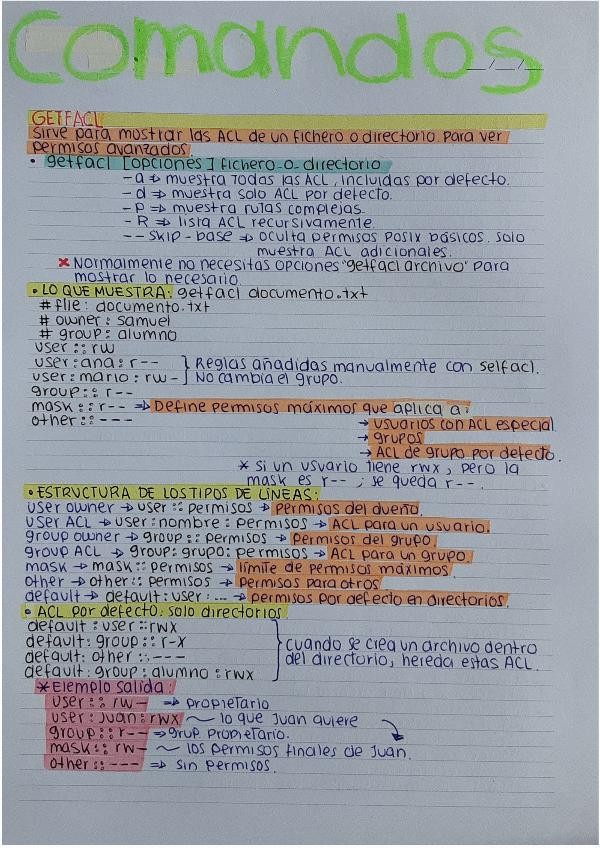 Comandos
GETFACL
Sirve para mostrar las ACL de un fichero o directorio. Para ver
permisos avanzados.
• getfacl [opciones] fichero-o-directorio
-a ⇒ muestra todas las ACL, incluidas por defecto.
-d ⇒ muestra solo ACL por defecto.
-P ⇒ muestra rutas complejas.
-R ⇒ lista ACL recursivamente.
--skip-base ⇒ oculta permisos posix básicos, solo
muestra ACL adicionales.
× Normalmente no necesitas opciones "getfacl archivo" para
mostrar lo necesario.
• LO QUE MUESTRA: getfacl documento.txt
# file: documento.txt
# owner: samuel
# group: alumno
user::rw
user:ana:r-- } Reglas añadidas manualmente con selfacl.
user:mario:rw- No cambia el grupo.
group::r--
mask::r-- ⇒ Define permisos máximos que aplica a:
other::---
→ usuarios con ACL especial
→ grupos
→ ACL de grupo por defecto.
* si un usuario tiene rwx, pero la
mask es r--, se queda r--.
• ESTRUCTURA DE LOS TIPOS DE LÍNEAS:
user owner → user::permisos → permisos del dueño.
user ACL → user:nombre:permisos → ACL para un usuario.
group owner → group::permisos → permisos del grupo
group ACL → group:grupo:permisos → ACL para un grupo.
mask → mask::permisos → límite de permisos máximos.
other → other::permisos → permisos para otros
default → default:user:... → permisos por defecto en directorios.
• ACL por defecto. solo directorios
default:user::rwx
default:group::r-x } cuando se crea un archivo dentro
default:other::--- del directorio, hereda estas ACL.
default:group:alumno:rwx
* Ejemplo salida:
user::rw- ⇒ propietario
user:Juan:rwx ~ lo que Juan quiere
group::r-- ⇒ grup. propietario.
mask::rw- ~ los permisos finales de Juan.
other::--- ⇒ sin permisos.